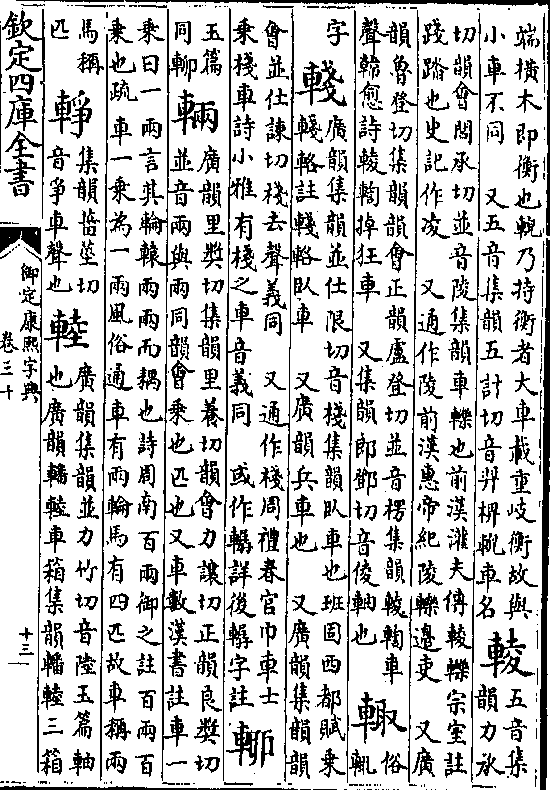 端橫木即衡也輗乃持衡者大車載重岐衡故與
小車不同 又五音集韻五計切音羿枅輗車名
輘
五音集
韻力氶
切韻會閭承切並音陵集韻車轢也前漢灌夫傳輘轢宗室註
踐踏也史記作凌 又通作陵前漢惠帝紀陵轢邊吏 又廣
韻魯登切集韻韻會正韻盧登切並音楞集韻輘輷車
聲韓愈詩輘輷掉狂車 又集韻郎鄧切音倰軸也
輙
俗
輒
字
輚
廣韻集韻並仕限切音棧集韻臥車也班固西都賦乗
輚輅註輚輅臥車 又廣韻兵車也 又廣韻集韻韻
會並仕諫切棧去聲義同 又通作棧周禮春官巾車士
乗棧車詩小雅有棧之車音義同 或作轏詳後轏字註
玉篇
同
輛
廣韻里奬切集韻里養切韻會力讓切正韻良奬切
並音兩與兩同韻會乗也匹也又車數漢書註車一
乗曰一兩言其輪轅兩兩而耦也詩周南百兩御之註百兩百
乗也疏車一乗為一兩風俗通車有兩輪馬有四匹故車稱兩
馬稱
匹
䡝
集韻甾莖切
音爭車聲也
䡜
廣韻集韻並力竹切音陸玉篇軸
也廣韻轓䡜車箱集韻轓䡜三箱
欽定四庫全書
御定康熙字典
卷三十
十三